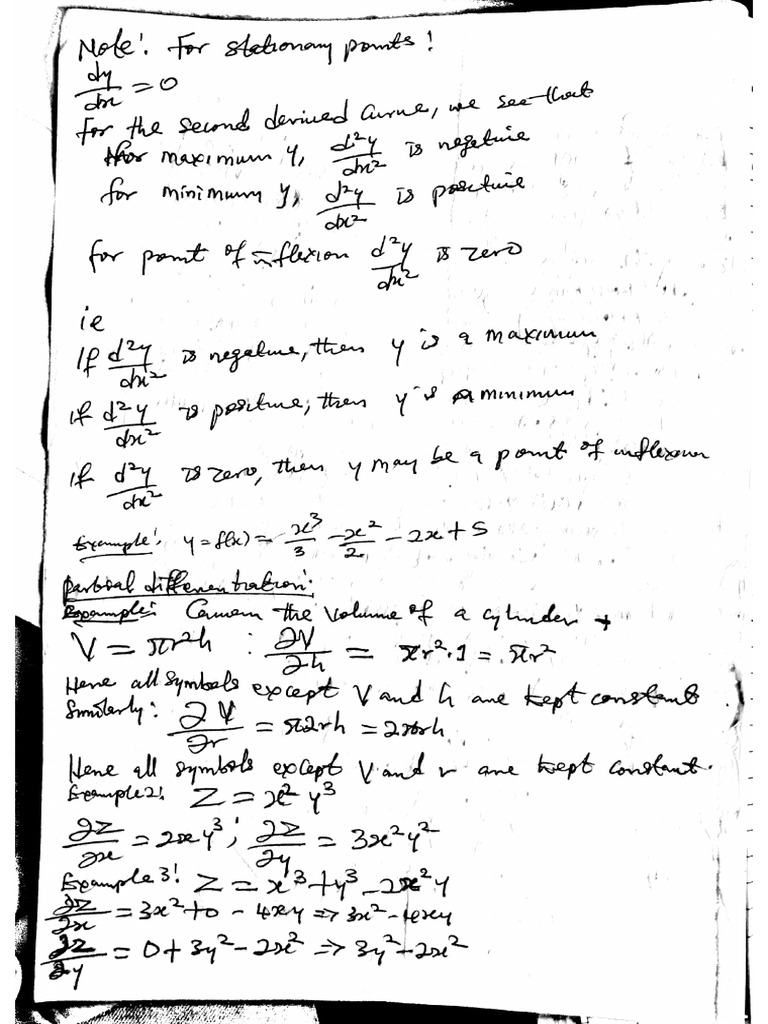 Note: For stationary points!
dy/dx = 0
For the second derived curve, we see that
for maximum y, d²y/dx² is negative
for minimum y, d²y/dx² is positive
for point of inflexion d²y/dx² is zero
ie
If d²y/dx² is negative, then y is a maximum
if d²y/dx² is positive, then y is a minimum
if d²y/dx² is zero, then y may be a point of inflexion
Example: y = f(x) = x³/3 - x²/2 - 2x + 5
partial differentiation:
Example: the volume of a cylinder
V = πr²h : ∂V/∂h = πr²·1 = πr²
Here all symbols except V and h are kept constant
Similarly: ∂V/∂r = π2rh = 2πrh
Here all symbols except V and r are kept constant.
Example 2: Z = x² y³
∂Z/∂x = 2xy³ ; ∂Z/∂y = 3x²y²
Example 3: Z = x³ + y³ - 2x²y
∂z/∂x = 3x² + 0 - 4xy ⇒ 3x² - 4xy
∂z/∂y = 0 + 3y² - 2x² ⇒ 3y² - 2x²